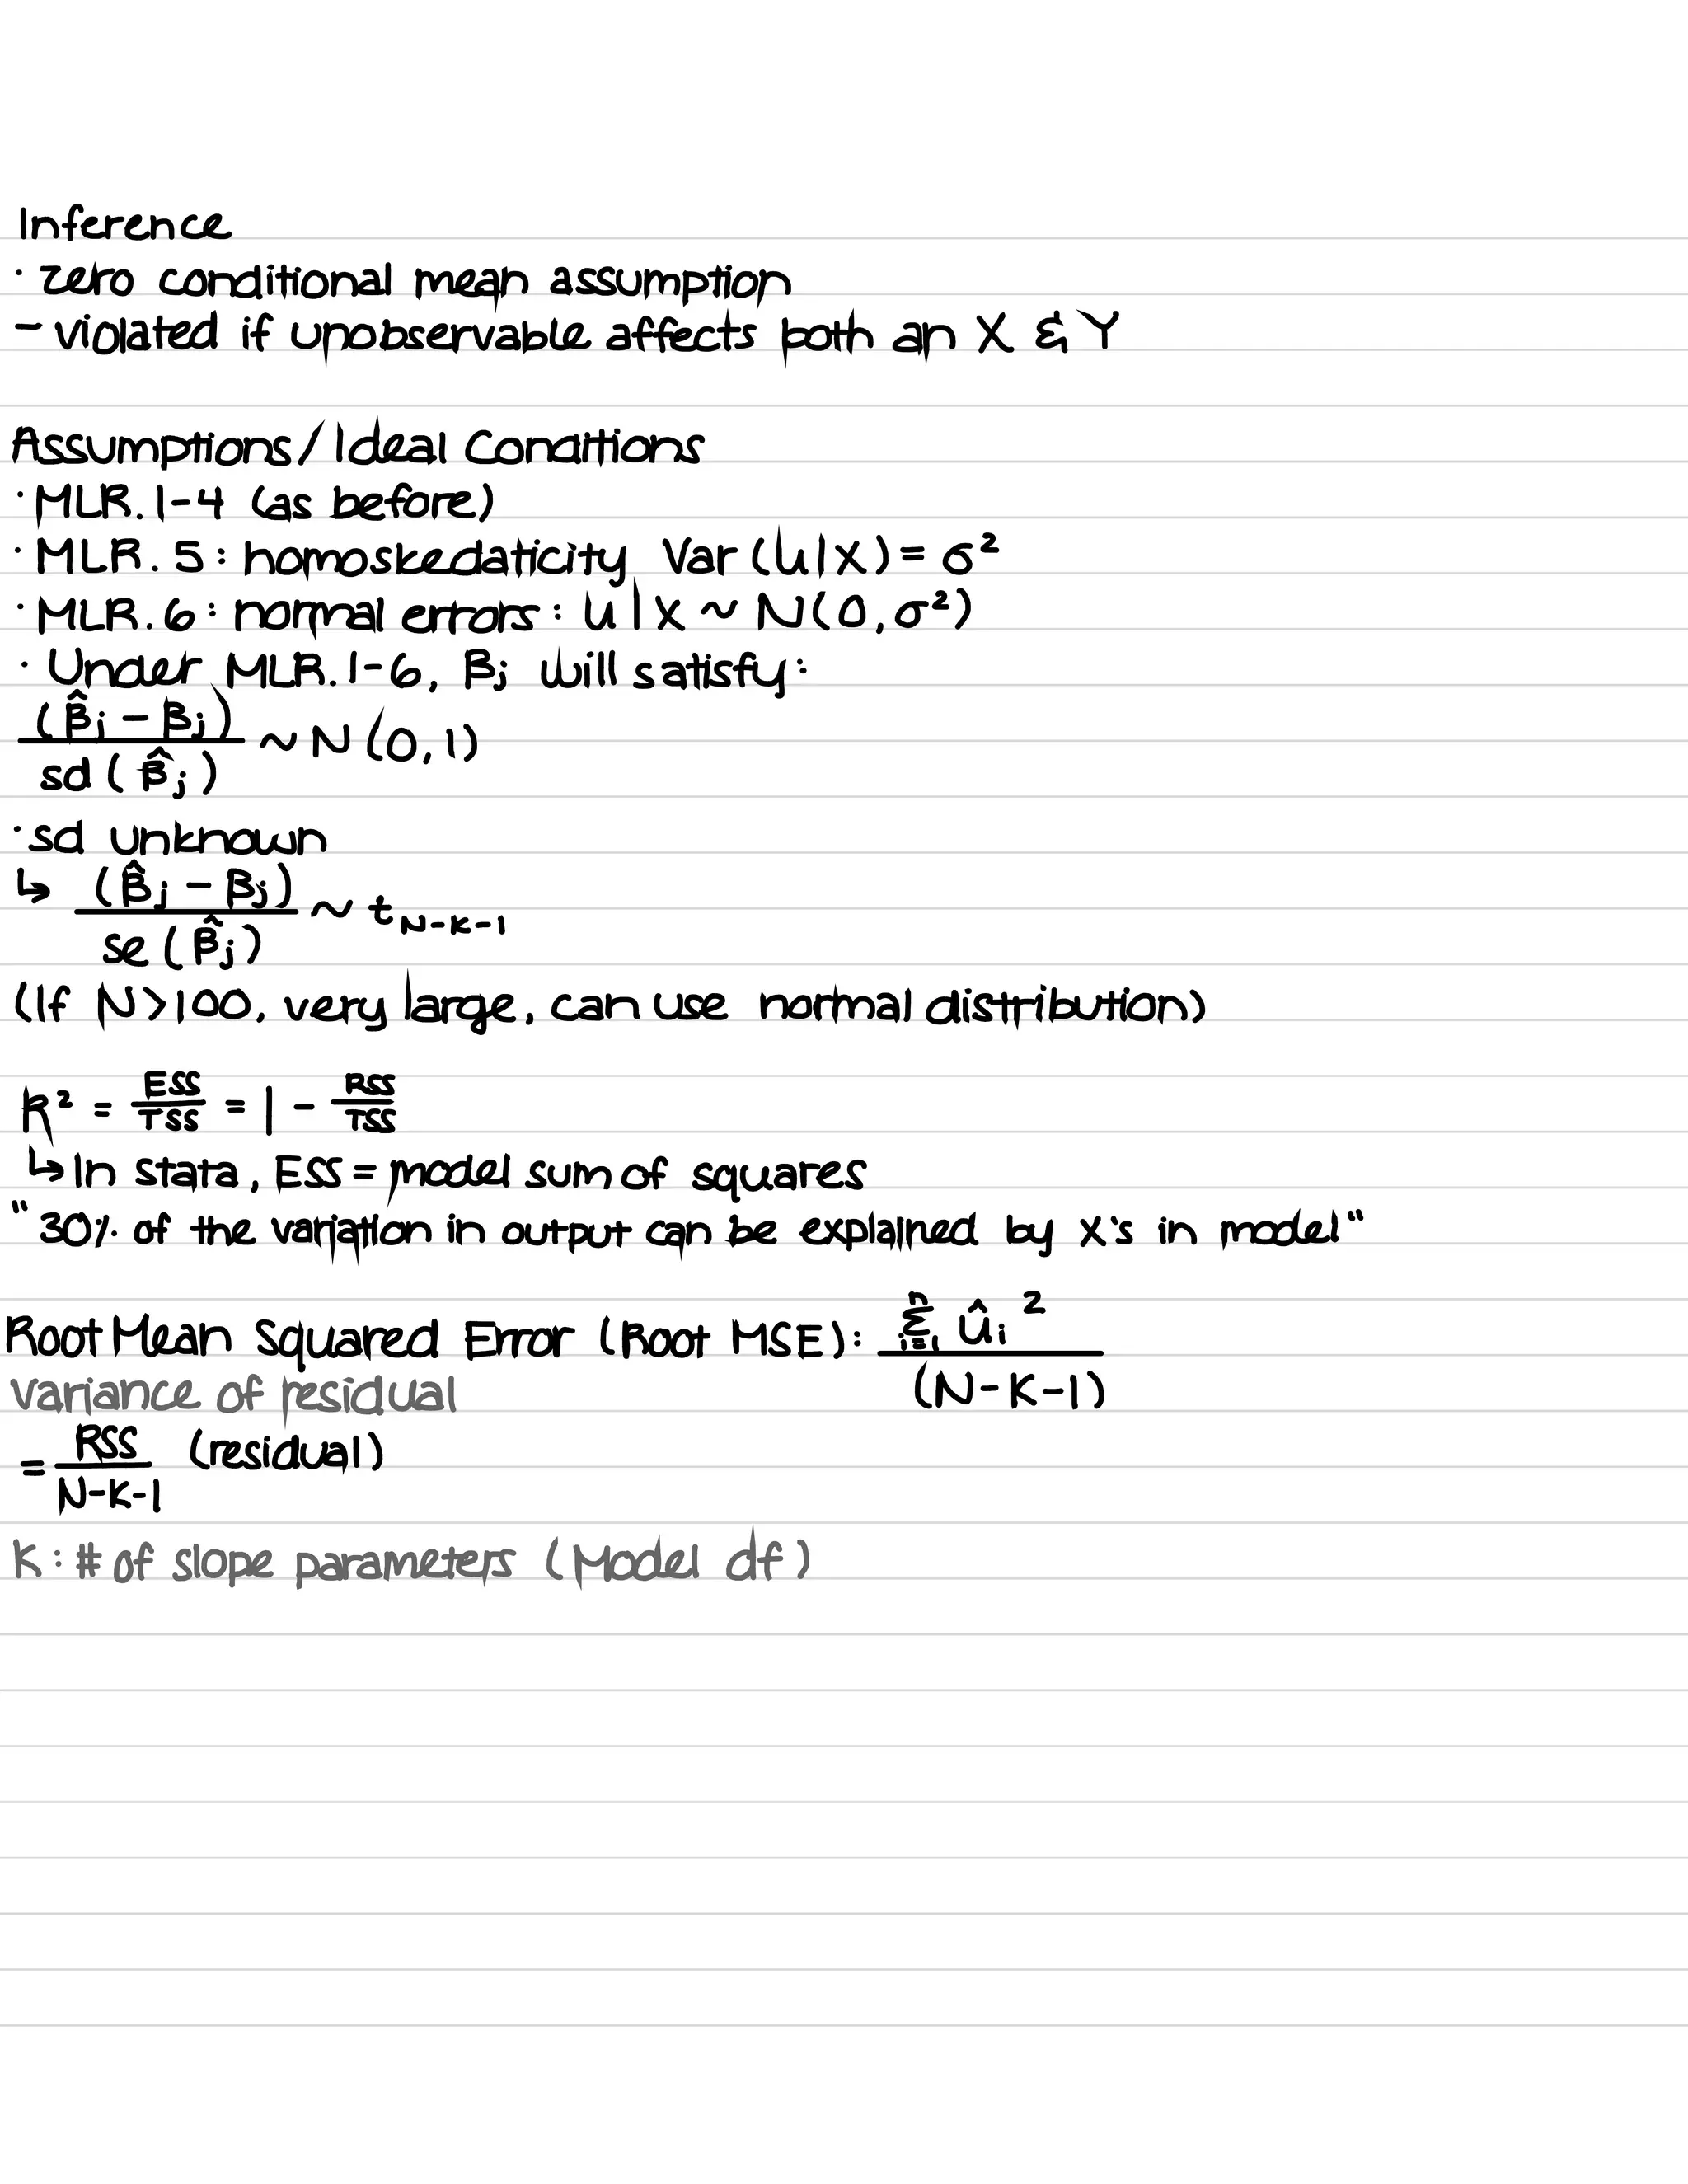 Inference
· zero conditional mean assumption
- violated if unobservable affects both an X & Y
Assumptions/Ideal Conditions
· MLR.1-4 (as before)
· MLR.5: homoskedaticity Var(u|X) = σ²
· MLR.6: normal errors: u|X ~ N(0,σ²)
· Under MLR.1-6, βj will satisfy:
(β̂j - βj) / sd(β̂j) ~ N(0,1)
· sd unknown
↳ (β̂j - βj) / se(β̂j) ~ t N-K-1
(If N>100, very large, can use normal distribution)
R² = ESS/TSS = 1 - RSS/TSS
↳ In stata, ESS = model sum of squares
"30% of the variation in output can be explained by X's in model"
Root Mean Squared Error (Root MSE): Σ i=1 n ûi² / (N-K-1)
variance of residual
= RSS / N-K-1 (residual)
K: # of slope parameters (Model df)